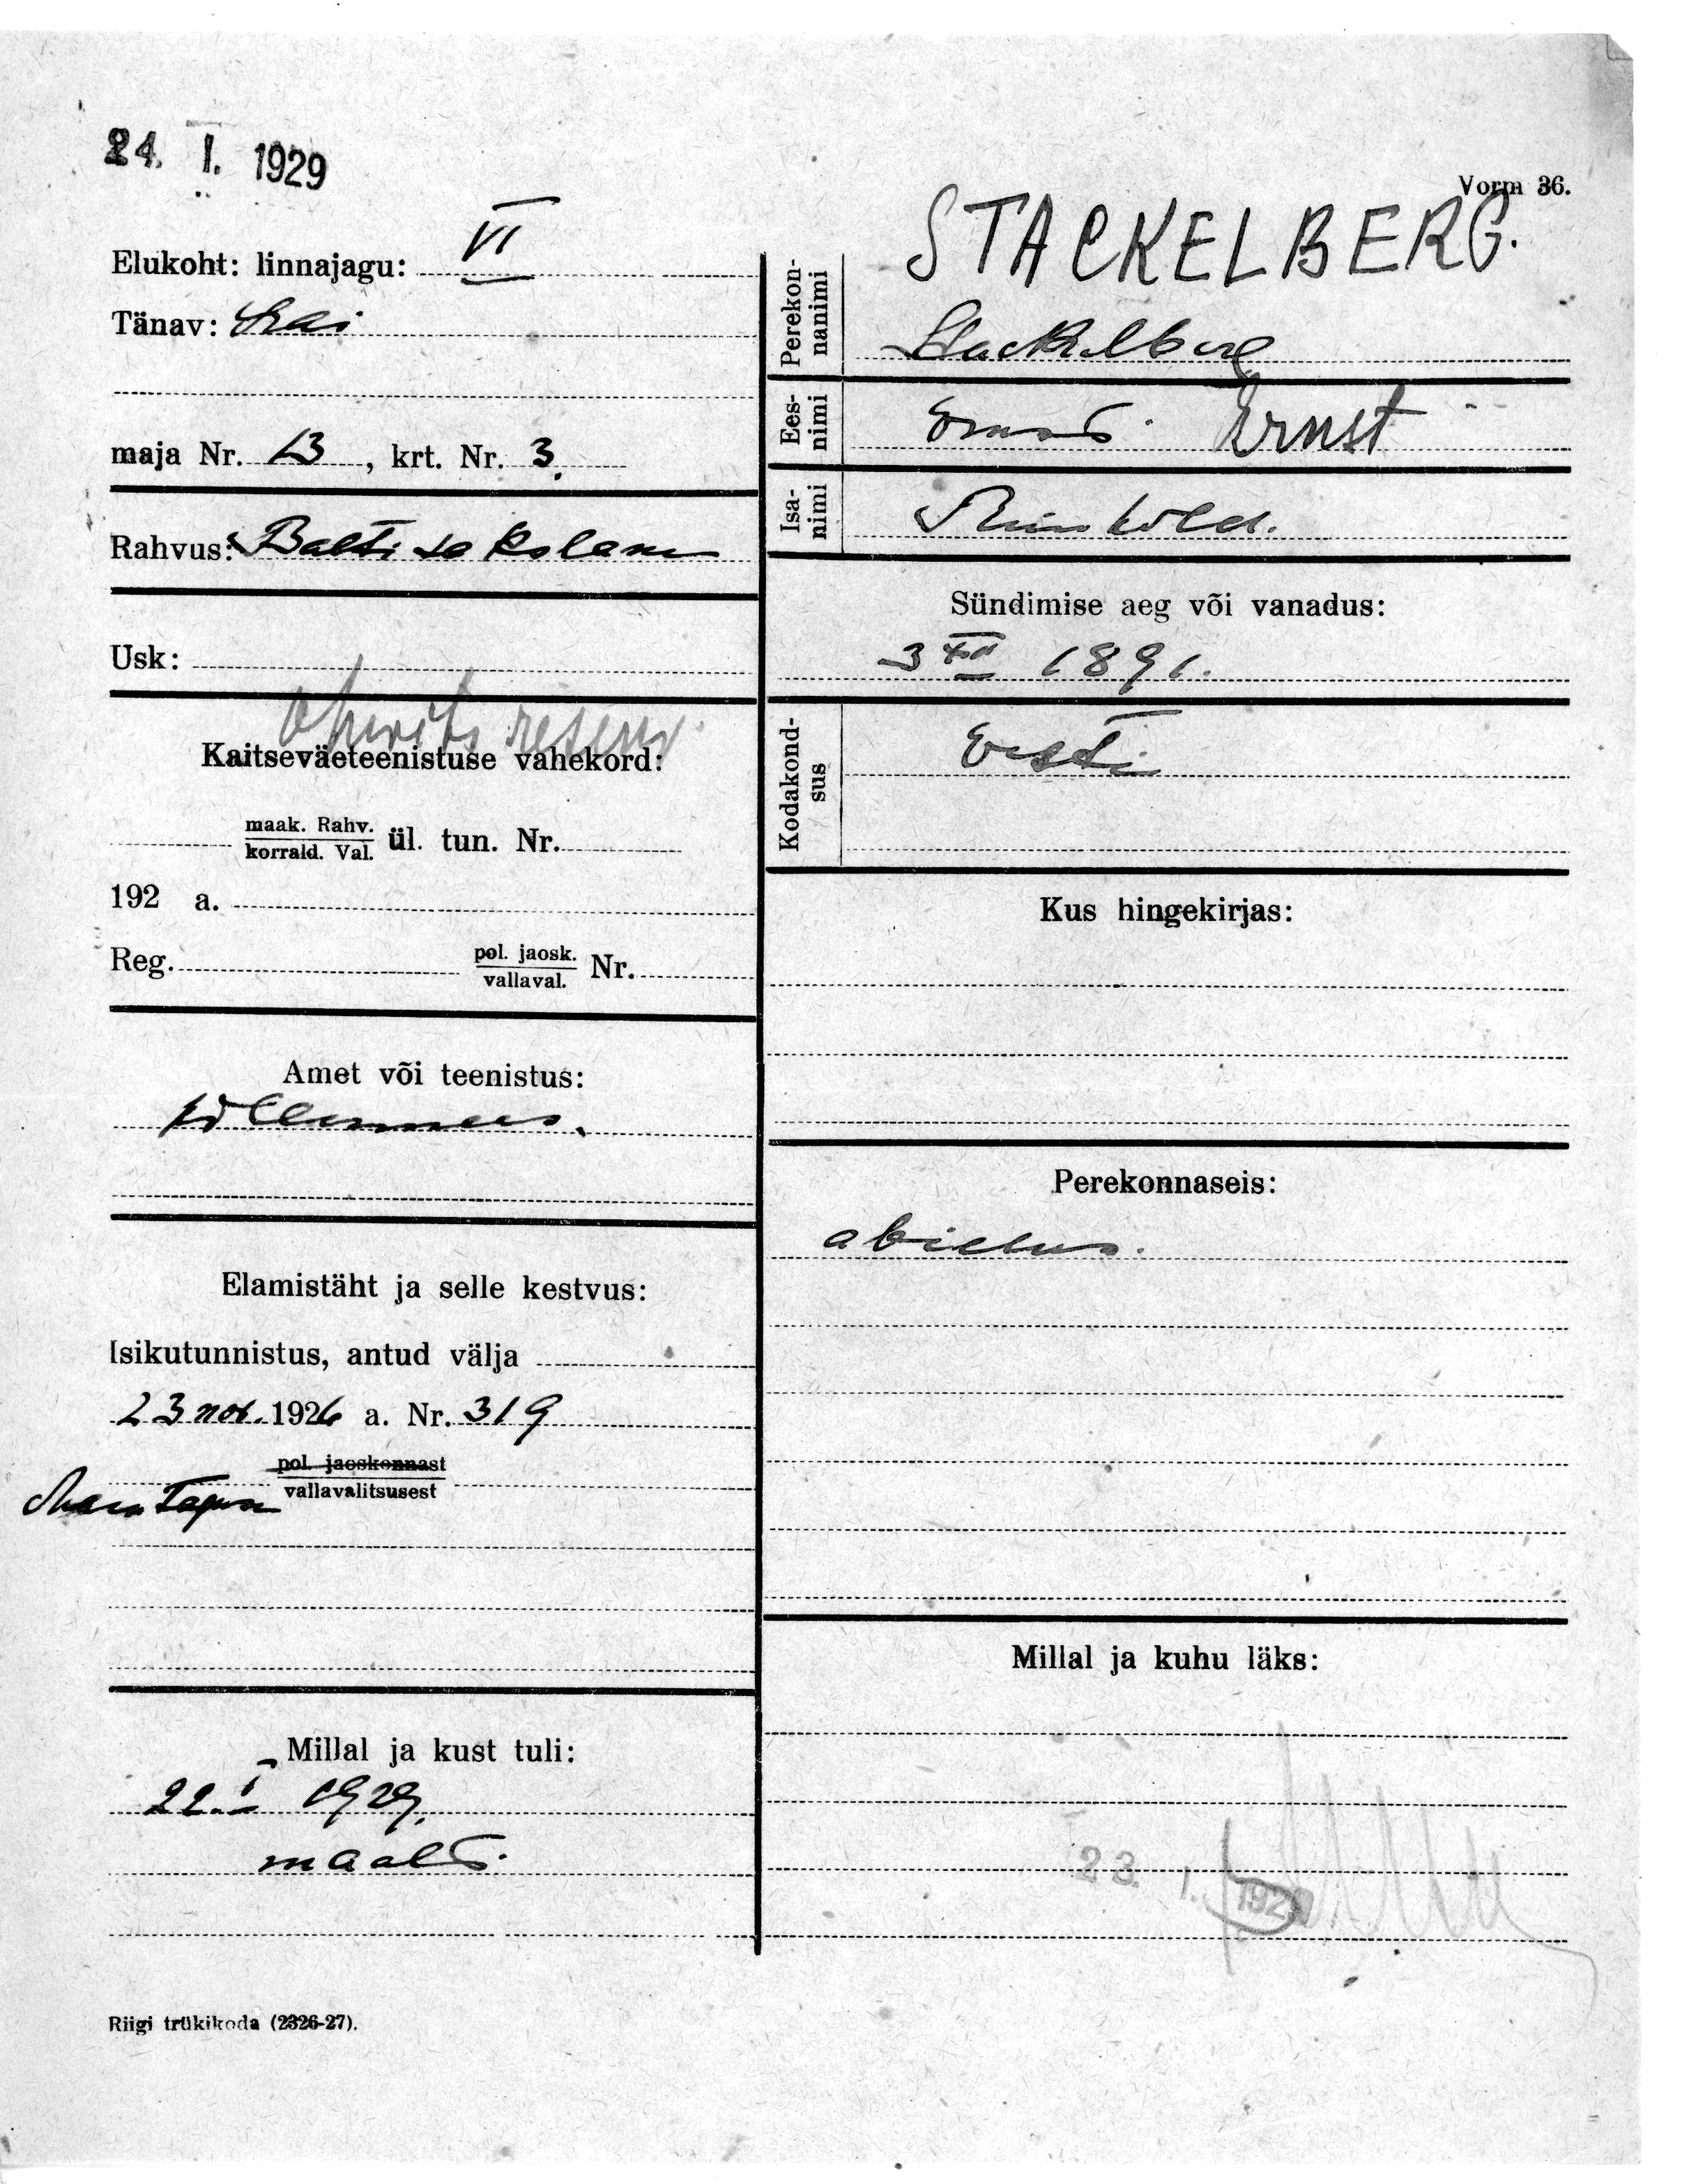 24. I. 1929
Vorm 36.
Elukoht: linnajagu: VI
Tänav: Lai
maja Nr. 13, krt. Nr. 3.
Rahvus: Balti sakslane
Usk:
Kaitseväeteenistuse vahekord:
maak. Rahv.
korrald. Val. ül. tun. Nr.
192 a.
Reg. pol. jaosk.
vallaval. Nr.
Amet või teenistus:
põllumees.
Elamistäht ja selle kestvus:
Isikutunnistus, antud välja
23 nov. 1926 a. Nr. 319
pol. jaoskonnast
vallavalitsusest
Millal ja kust tuli:
22. I 1929.
maalt.
Riigi trükikoda (2326-27).
STACKELBERG.
Perekon-
nanimi
Stackelberg
Ees-
nimi
Ernst. Ernst
Isa-
nimi
Reinhold.
Sündimise aeg või vanadus:
3 XII 1891.
Kodakond-
sus
Eesti
Kus hingekirjas:
Perekonnaseis:
abielus.
Millal ja kuhu läks:
23. I. 192